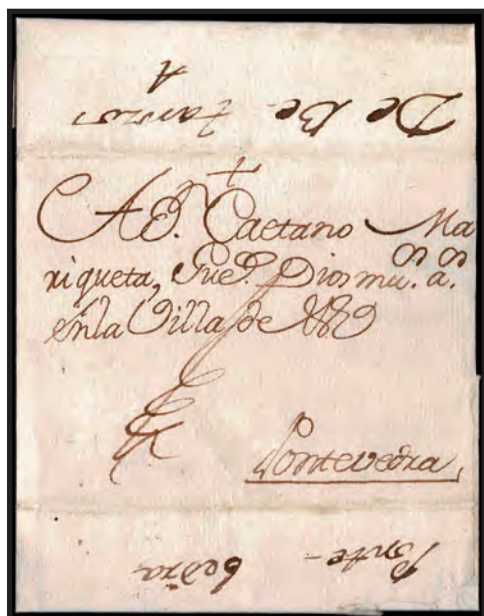 De Be-
tanzos
A
+
A D. Caetano Ma
riqueta, Gue. Dios ms. as.
en la Villa de
Pontevedra
Ponte-
bedra